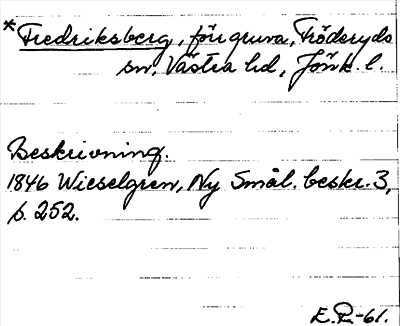 *Fredriksberg, förr gruva, Fröderyds
sn, Västra hd, Jönk. l.
Beskrivning.
1846 Wieselgren, Ny Smål. beskr. 3,
s. 252.
E.P.-61.